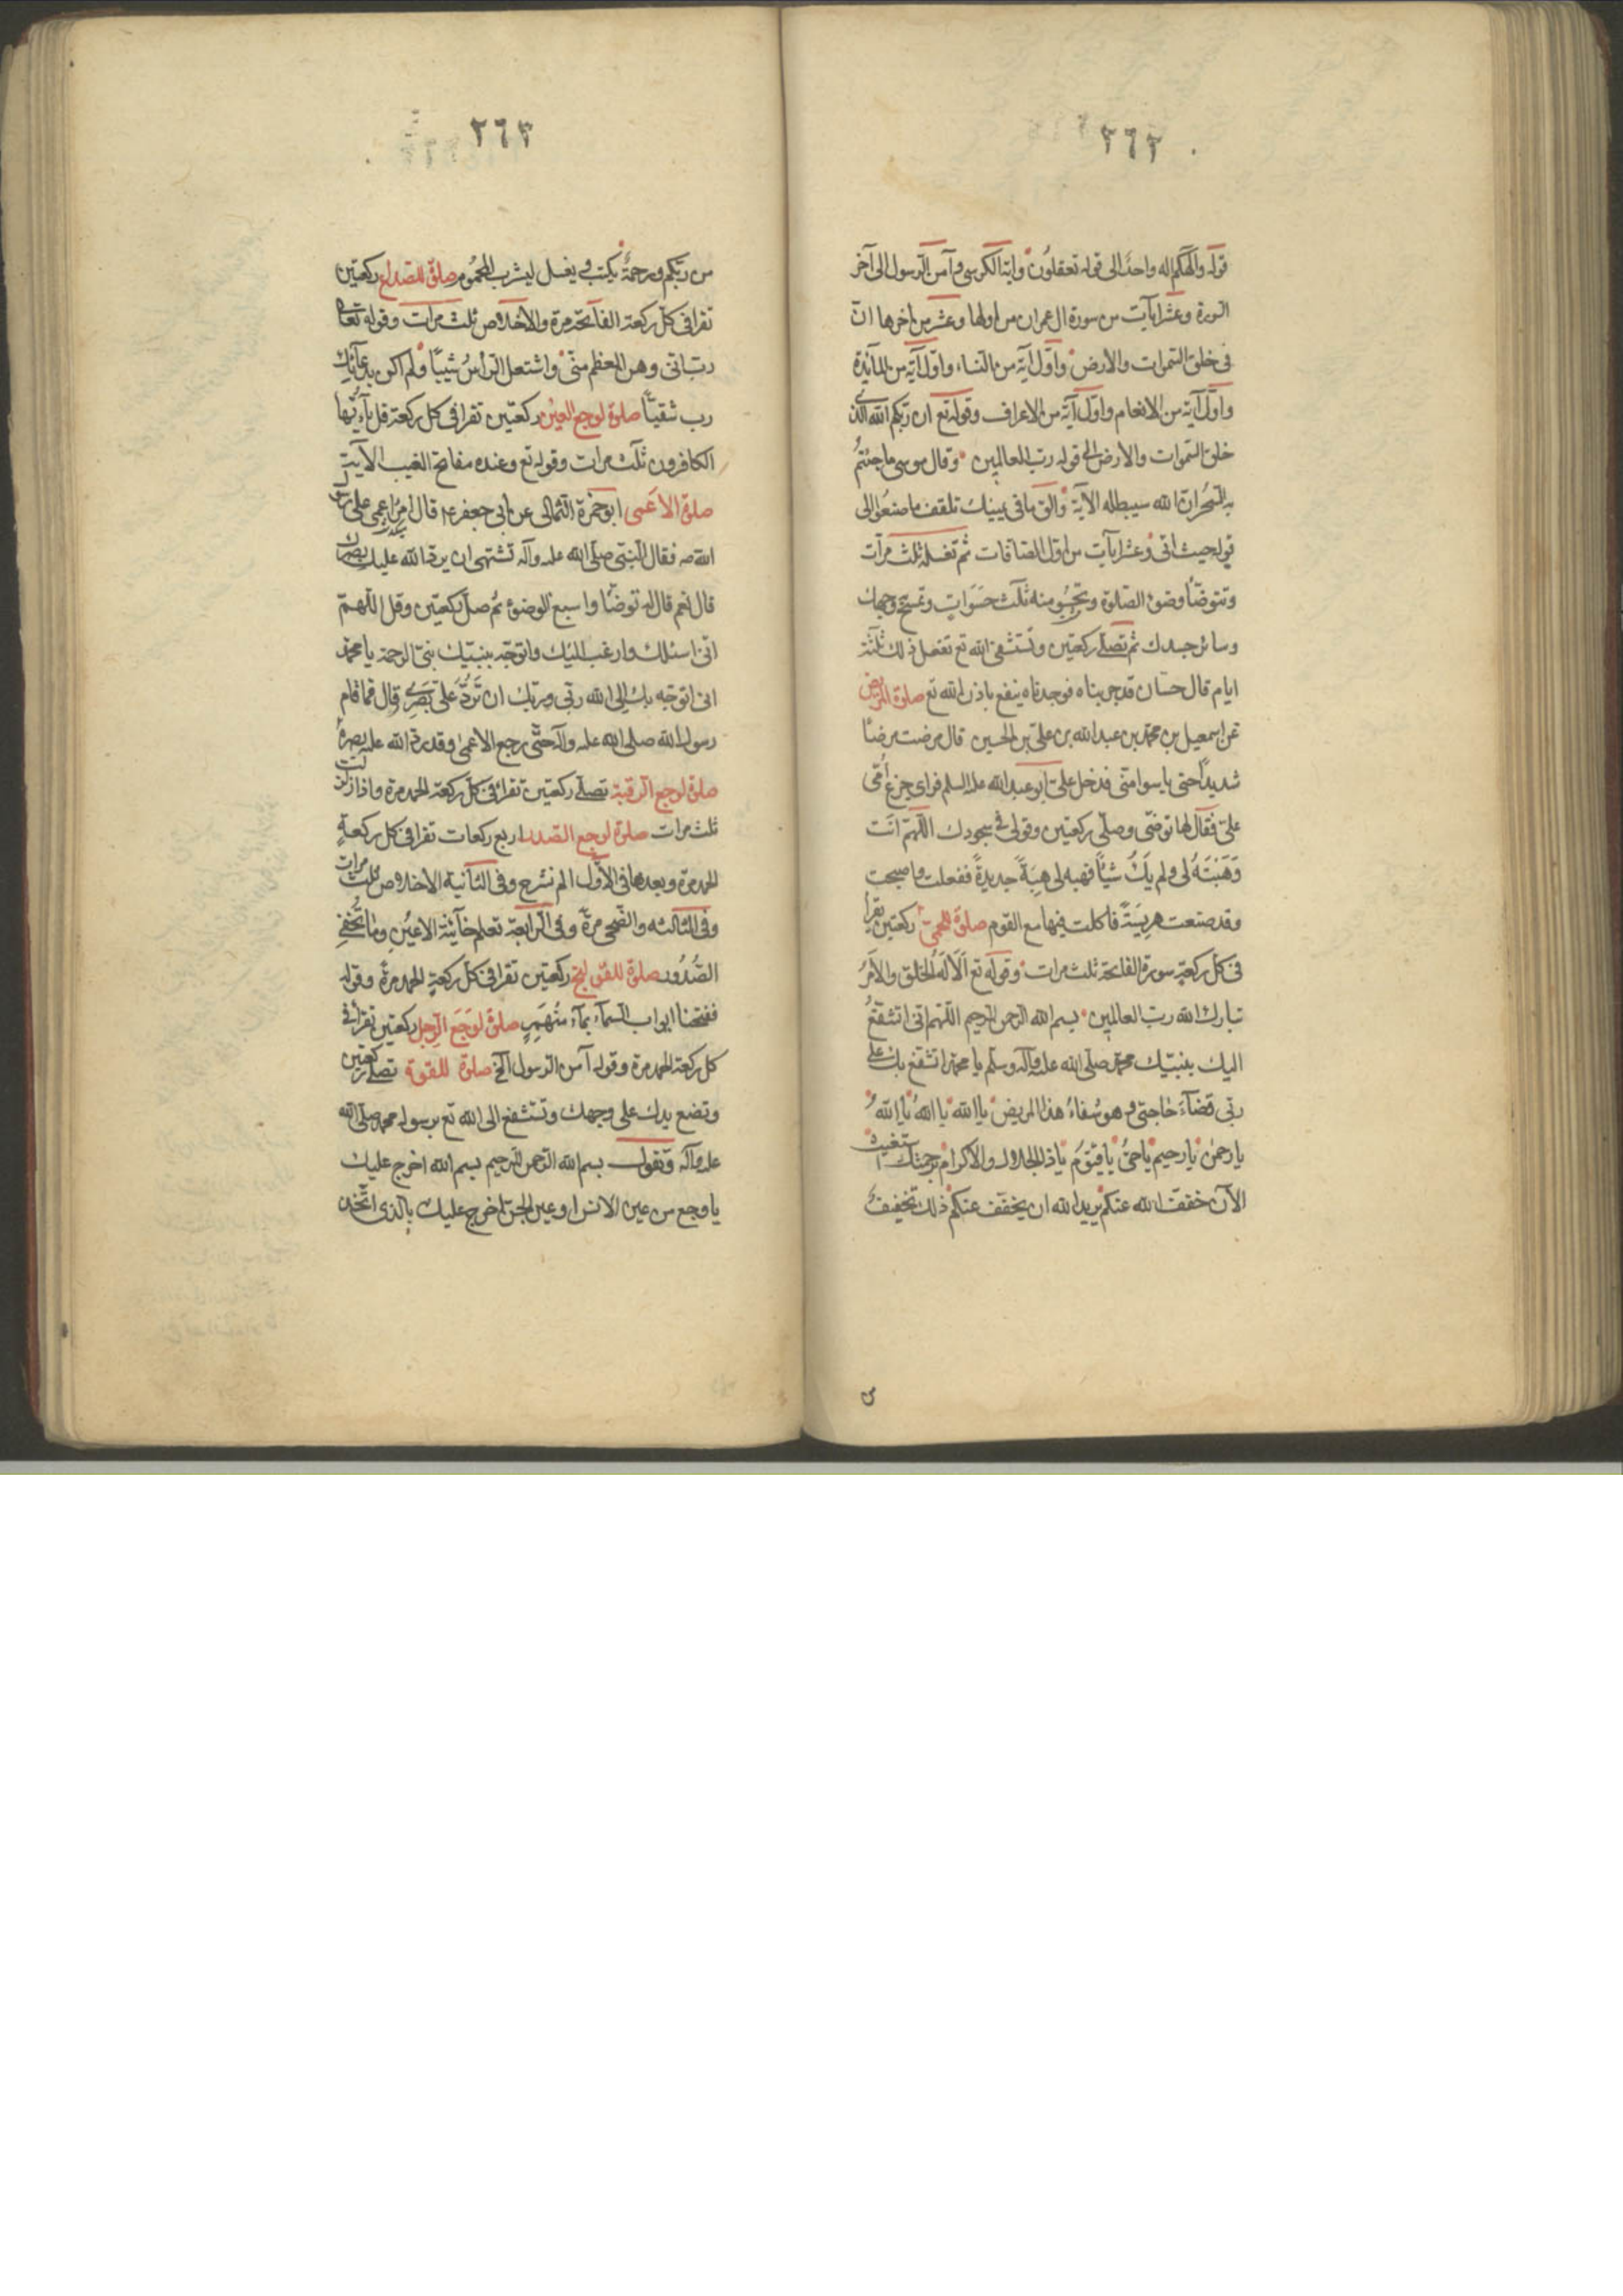 ٢٦٢
قوله والهكم اله واحد الى قوله تعقلون وآية الكرسى وآمن الرسول الى آخر
السورة وعشر آيات من سورة ال عمران من اولها وعشر من اخرها ان
فى خلق السموات والارض واول آية من النساء واول آية من المآئدة
واول آية من الانعام واول آية من الاعراف وقوله تع ان ربكم الله الذى
خلق السموات والارض الى قوله رب العالمين وقال موسى ما جئتم
به السحر ان الله سيبطله الآية والق ما فى يمينك تلقف ما صنعوا الى
قوله حيث اتى وعشر آيات من اول الصافات ثم تغسله ثلث مرات
وتتوضأ وضوء الصلوة وتحسو منه ثلث حسوات وتمسح وجهك
وسائر جسدك ثم تصلى ركعتين وتستشفى الله تع تفعل ذلك ثلثة
ايام قال حسان قد جربناه فوجدناه ينفع باذن الله تع صلوة المريض
عن اسمعيل بن محمد بن عبد الله بن على بن الحسين قال مرضت مرضا
شديدا حتى يأسوا منى فدخل على ابو عبد الله عله السلم فراى جزع أمى
على فقال لها توضئ وصلى ركعتين وقولى فى سجودك اللهم انت
وهبته لى ولم يك شيئا فهبه لى هبة جديدة ففعلت فاصبحت
وقد صنعت هريسة فاكلت فيها مع القوم صلوة للحمى ركعتين يقرا
فى كل ركعة سورة الفاتحة ثلث مرات وقوله تع ألا له الخلق والامر
تبارك الله رب العالمين بسم الله الرحمن الرحيم اللهم انى اتشفع
اليك بنبيك محمد صلى الله عله وآله وسلم يا محمد اتشفع بك على
ربى قضآء حاجتى وهو شفاء هذا المريض يا الله يا الله يا الله
يا رحمن يا رحيم يا حى يا قيوم يا ذا الجلال والاكرام برحمتك استغيث
الآن خفف الله عنكم يريد الله ان يخفف عنكم ذلك تخفيف
٢٦٣
من ربكم ورحمة يكتب ويغسل ليشرب المحموم صلوة للصداع ركعتين
تقرا فى كل ركعة الفاتحة مرة والاخلاص ثلث مرات وقوله تعالى
رب انى وهن العظم منى واشتعل الرأس شيبا ولم اكن بدعآئك
رب شقيا صلوة لوجع العين ركعتين تقرا فى كل ركعة قل يآ ايها
الكافرون ثلث مرات وقوله تع وعنده مفاتح الغيب الآية
صلوة الاعمى ابو حمزة الثمالى عن ابى جعفر ع قال مر اعمى على رسول
الله ص فقال النبى صلى الله عله وآله تشتهى ان يرد الله عليك بصرك
قال نعم قال له توضأ واسبغ الوضوء ثم صل ركعتين وقل اللهم
انى اسئلك وارغب اليك واتوجه بنبيك نبى الرحمة يا محمد
انى اتوجه بك الى الله ربى وربك ان ترد على بصرى قال فما قام
رسول الله صلى الله عله وآله حتى رجع الاعمى وقد رد الله عله بصره
صلوة لوجع الرقبة تصلى ركعتين تقرا فى كل ركعة الحمد مرة واذا زلزلت
ثلث مرات صلوة لوجع الصدر اربع ركعات تقرا فى كل ركعة
الحمد مرة وبعدها فى الاول الم نشرح وفى الثانية الاخلاص ثلث مرات
وفى الثالثه والضحى مرة وفى الرابعة تعلم خآئنة الاعين وما تخفى
الصدور صلوة للقولنج ركعتين تقرا فى كل ركعة الحمد مرة وقوله
ففتحنا ابواب السمآء بمآء منهمر صلوة لوجع الرجل ركعتين تقرا فى
كل ركعة الحمد مرة وقوله آمن الرسول الخ صلوة للقوة تصلى ركعتين
وتضع يدك على وجهك وتستشفع الى الله تع برسوله محمد صلى الله
عله وآله وتقول بسم الله الرحمن الرحيم بسم الله اخرج عليك
يا وجع من عين الانس او عين الجن اخرج عليك بالذى اتخذ